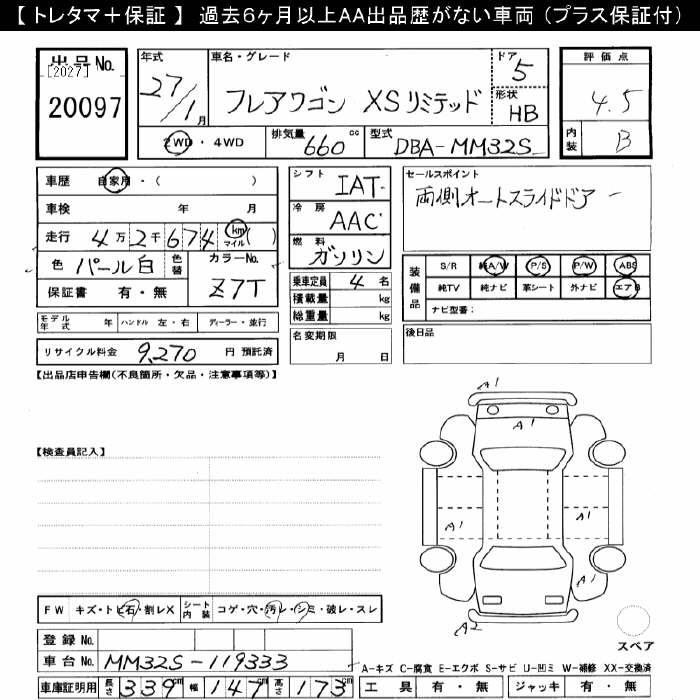 【 トレタマ＋保証 】 過去６ヶ月以上ＡＡ出品歴がない車両（プラス保証付）
出品No.
[2027]
20097
年式
27/1月
車名・グレード
フレアワゴン XSリミテッド
ドア
5
形状
HB
2WD ・ 4WD
排気量
660cc
型式
DBA-MM32S
評価点
4.5
内装
B
車歴 自家用・( )
車検 年 月
走行 4万2千674km マイル( )
色 パール白 色替 カラーNo. Z7T
保証書 有・無
モデル年式 年 ハンドル 左・右 ディーラー・並行
リサイクル料金 9,270 円 預託済
シフト
IAT
冷房
AAC
燃料
ガソリン
乗車定員 4 名
積載量 kg
総重量 kg
名変期限
月 日
セールスポイント
両側オートスライドドア
装備品
S/R 純A/W P/S P/W ABS
純TV 純ナビ 革シート 外ナビ エアB
ナビ型番：
後日品
【出品店申告欄(不良箇所・欠品・注意事項等)】
A1
A1
【検査員記入】
A1
A1
A1
A2
スペア
FW キズ・トビ石・割レX シート内装 コゲ・穴・汚レ・シミ・破レ・スレ
登録 No.
車台 No. MM32S-119333
A-キズ C-腐食 E-エクボ S-サビ U-凹ミ W-補修 XX-交換済
車庫証明用 長さ 339cm 幅 147cm 高さ 173cm
工具 有・無 ジャッキ 有・無